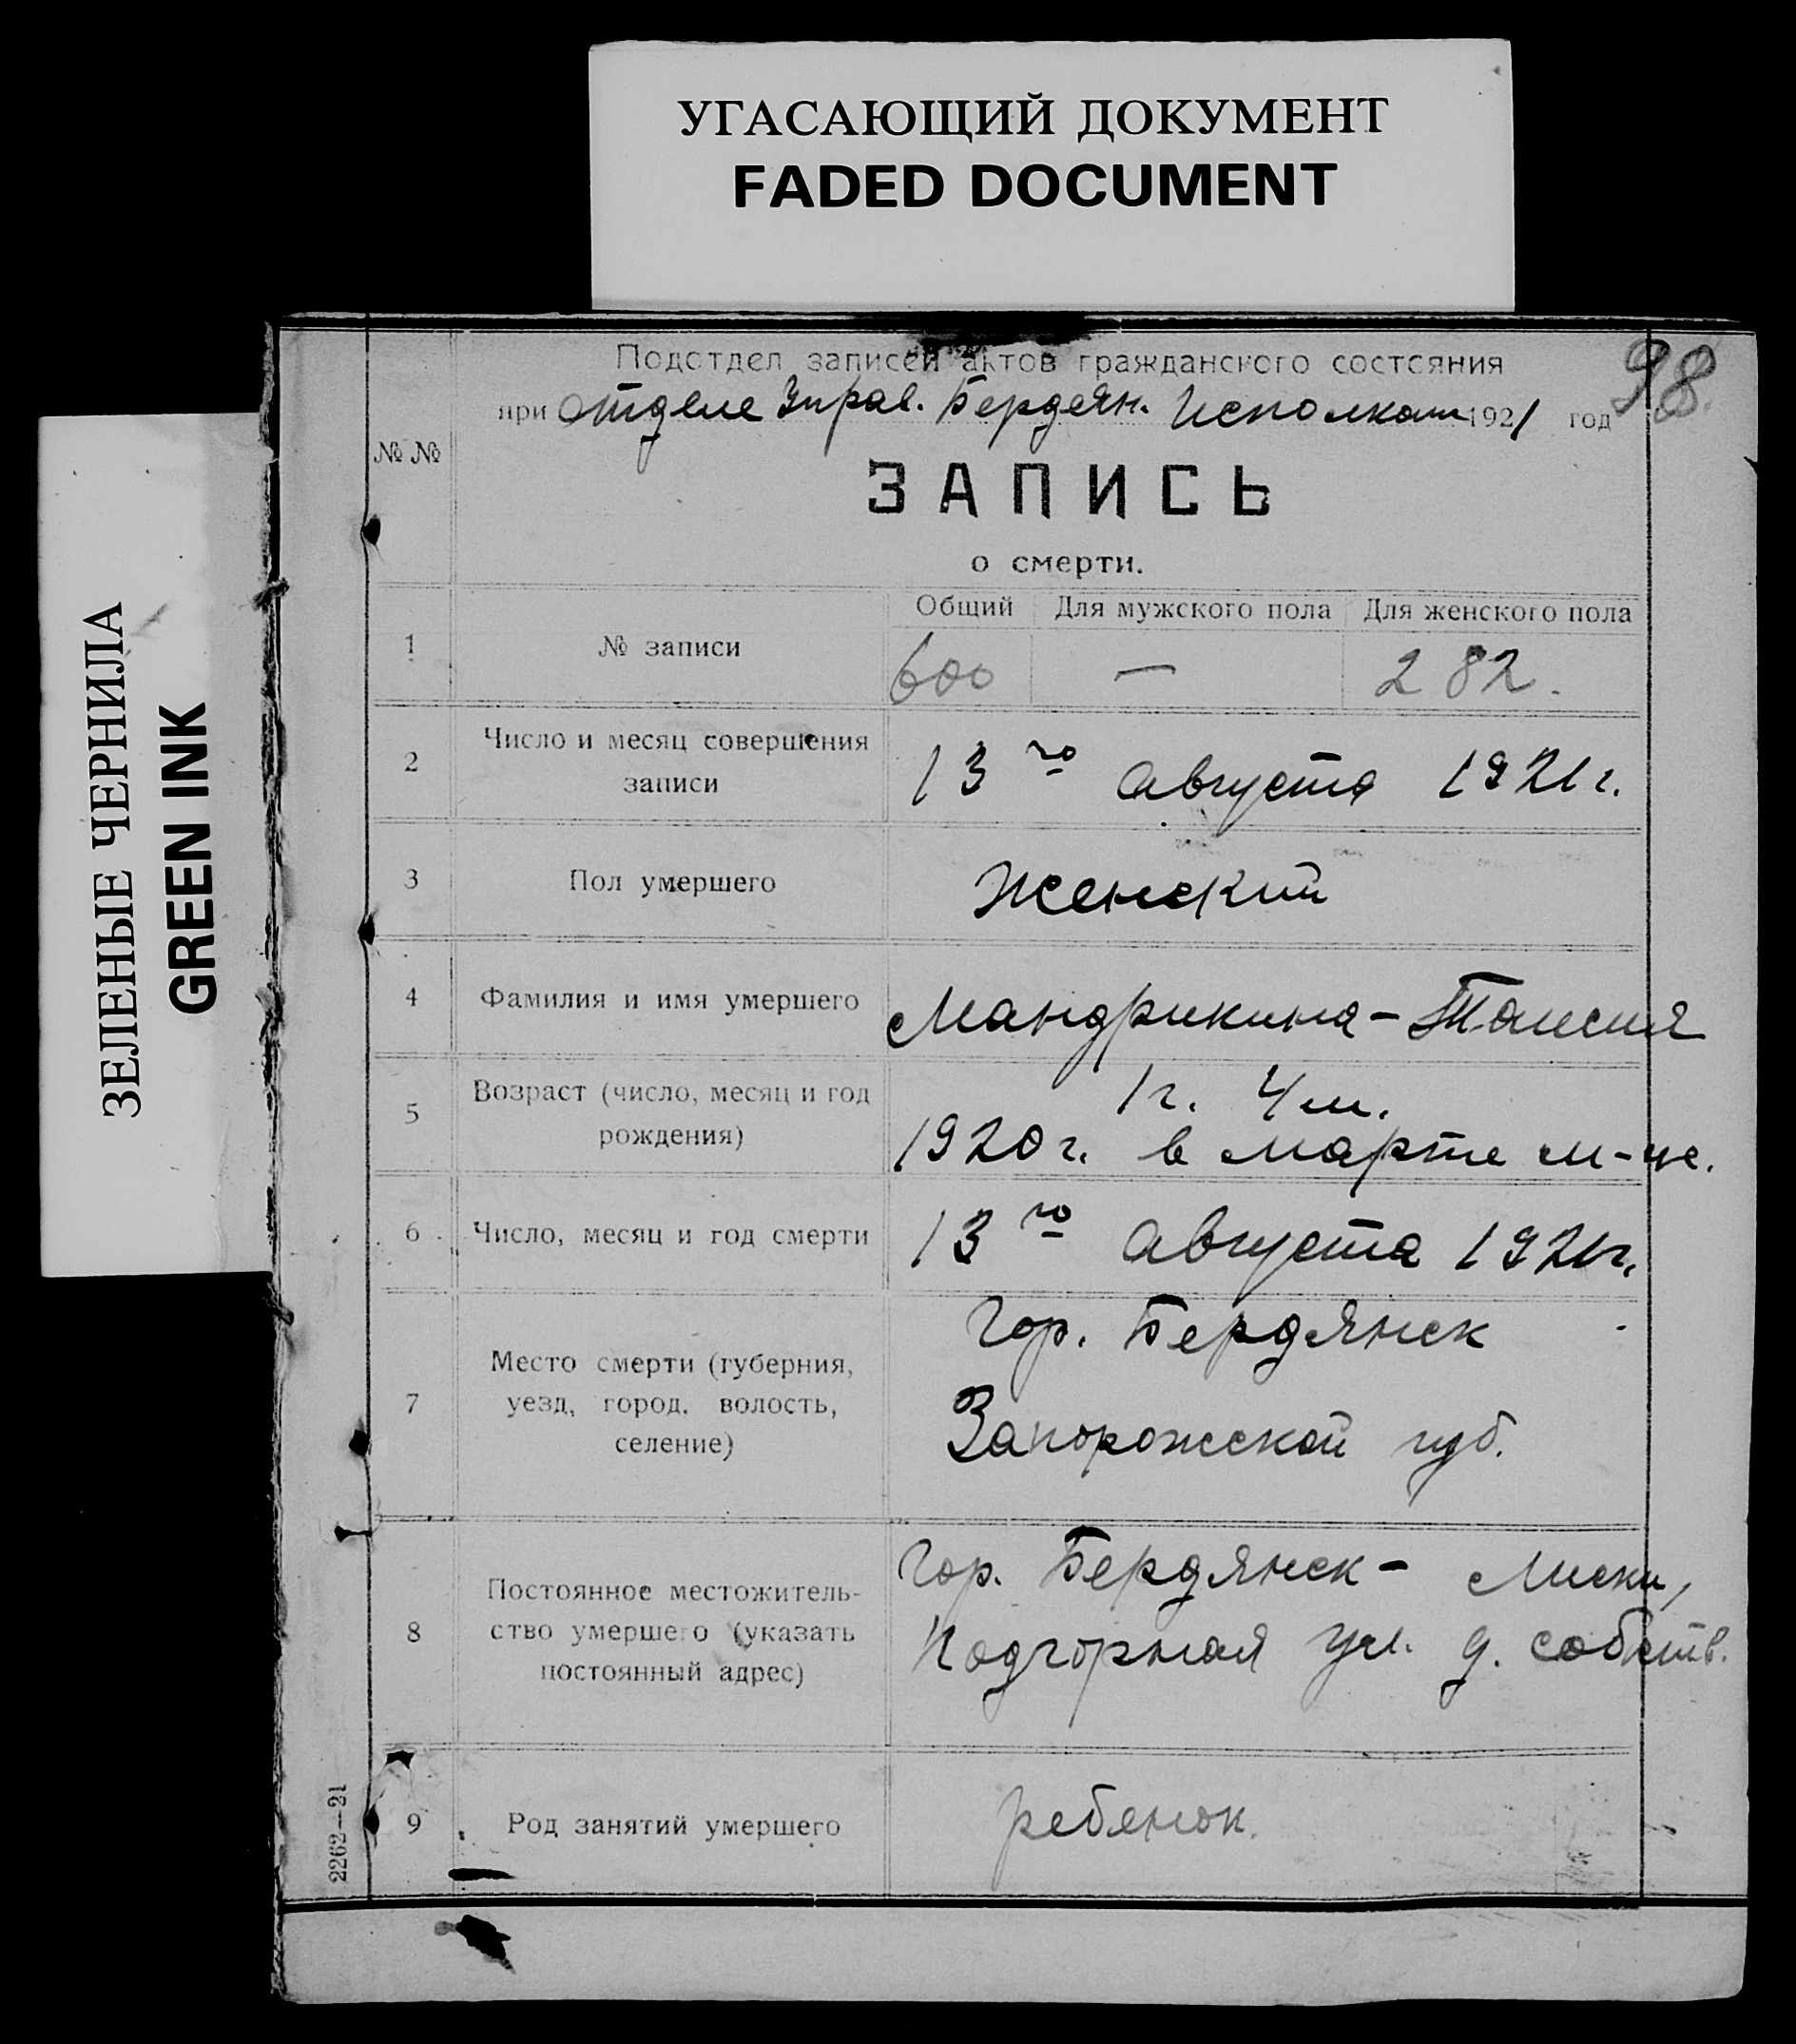 УГАСАЮЩИЙ ДОКУМЕНТ
FADED DOCUMENT
ЗЕЛЕНЫЕ ЧЕРНИЛА
GREEN INK
98.
Подотдел записей актов гражданского состояния
при Отделе Управ. Бердян. Исполком 1921 год
№ №
ЗАПИСЬ
о смерти.
Общий Для мужского пола Для женского пола
1 № записи 600 — 282.
2 Число и месяц совершения
записи
13го августа 1921 г.
3 Пол умершего Женский
4 Фамилия и имя умершего Мандрикина - Таисия
5 Возраст (число, месяц и год
рождения)
1 г. 4 м.
1920 г. в марте м-це.
6 Число, месяц и год смерти 13го августа 1921 г.
7 Место смерти (губерния,
уезд, город, волость,
селение)
Гор. Бердянск
Запорожской губ.
8 Постоянное местожитель-
ство умершего (указать
постоянный адрес)
Гор. Бердянск - Лиски,
Подгорная ул. д. собств.
9 Род занятий умершего ребенок.
2262—21